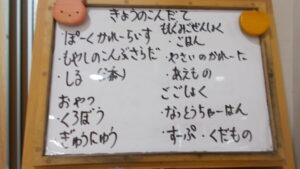 きょうのこんだて
・ぽーくかれーらいす
・もやしのこんぶさらだ
・しる
おやつ
・くろぼう
・ぎゅうにゅう
もぐもぐぜんしょく
・ごはん
・やさいのかれーに
・あえもの
ごごしょく
・なっとうちゃーはん
・すーぷ・くだもの